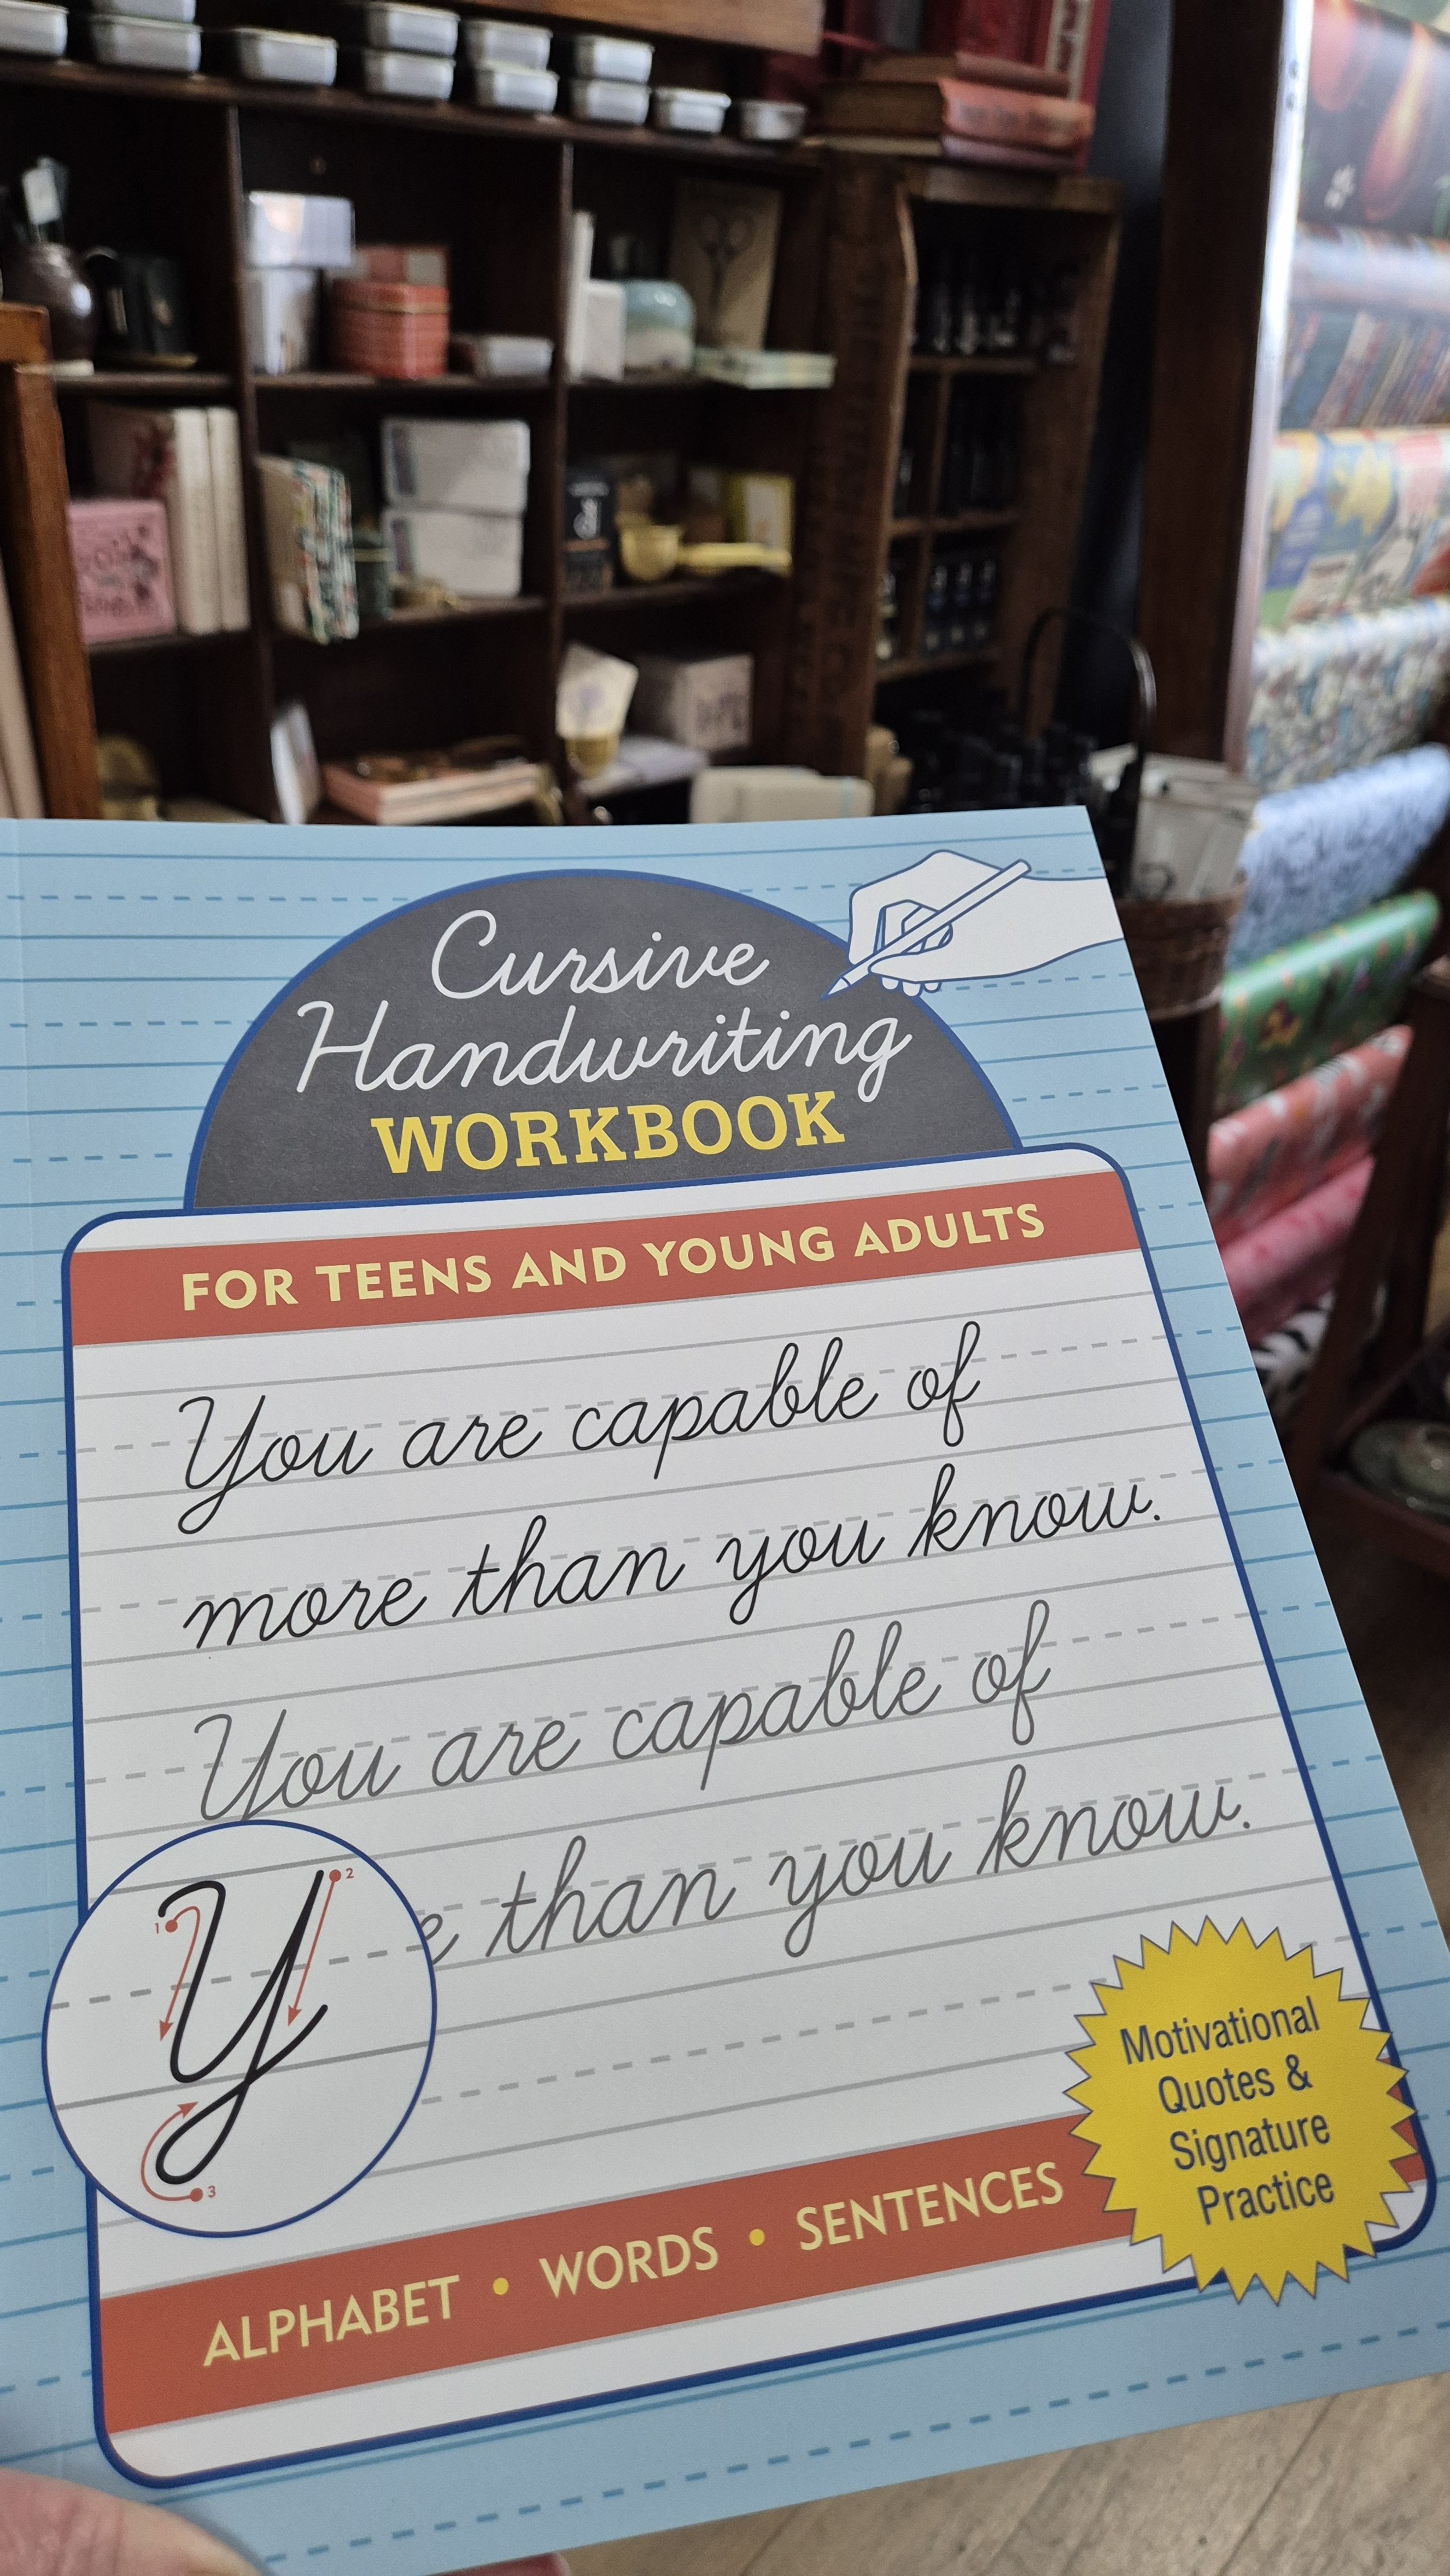 Cursive
Handwriting
WORKBOOK
FOR TEENS AND YOUNG ADULTS
You are capable of
more than you know.
You are capable of
e than you know.
1
2
Y
3
Motivational
Quotes &
Signature
Practice
ALPHABET • WORDS • SENTENCES